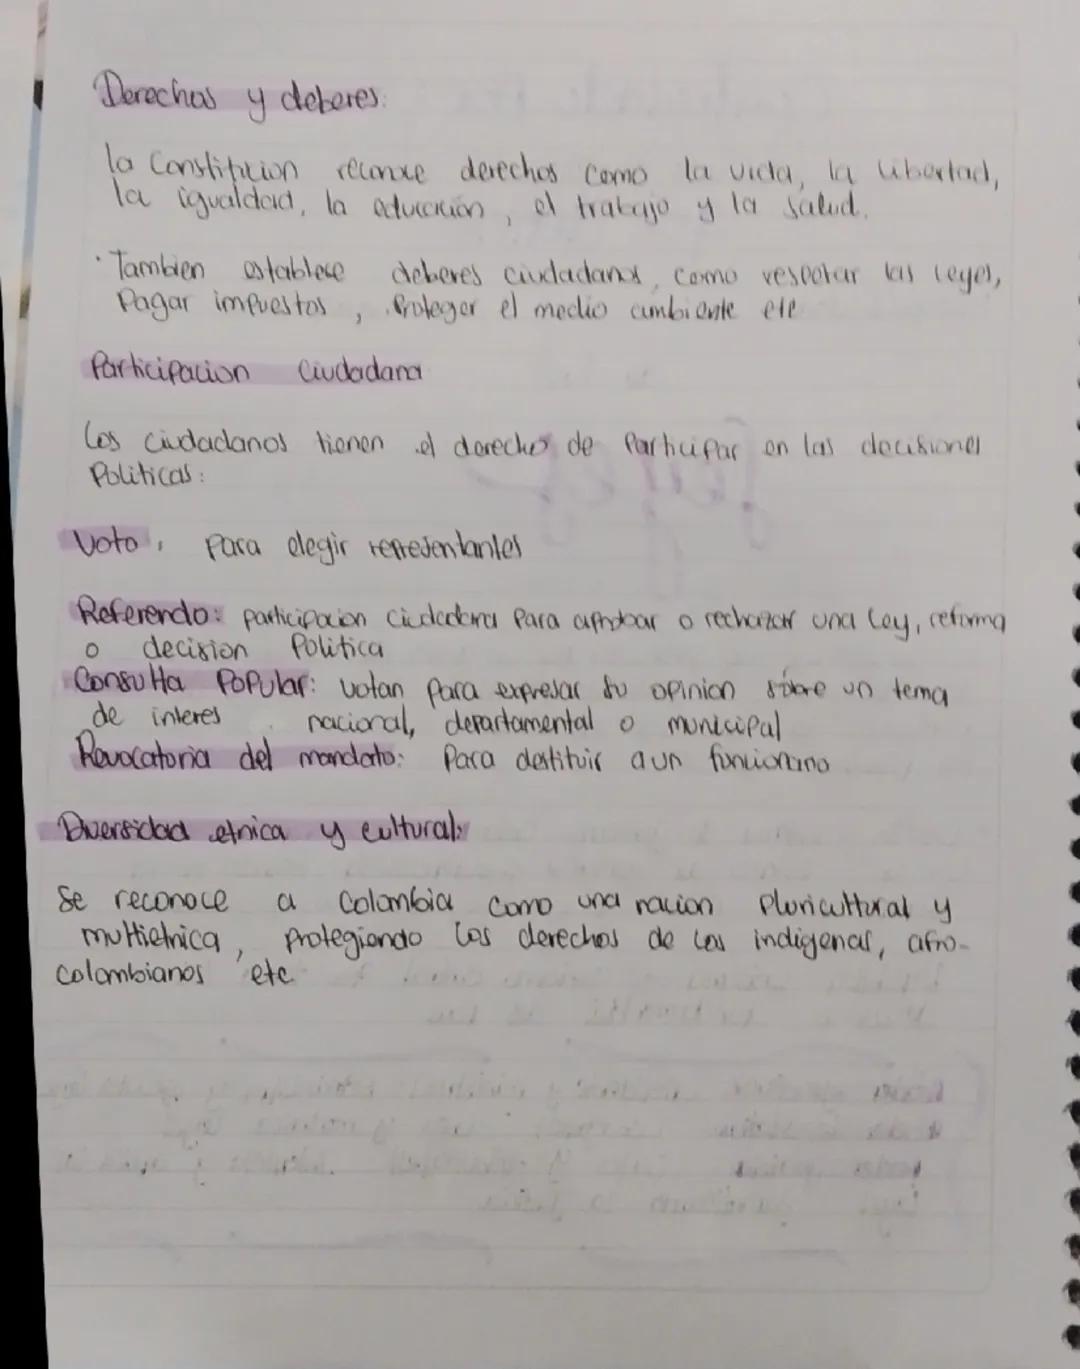 Derechos y deberes:
la Constitucion reconoce derechos como la vida, la libertad,
la igualdad, la educacion, el trabajo y la salud.
· Tambien establece deberes ciudadanos, como respetar las leyes,
Pagar impuestos, Proteger el medio ambiente etc
Participacion Ciudadana
Los ciudadanos tienen el derecho de Participar en las decisiones
Politicas:
Voto, para elegir representantes
Referendo: participacion ciudadana Para aprobar o rechazar una ley, reforma
o decision Politica
Consulta Popular: votan para expresar su opinion sobre un tema
de interes nacional, departamental o municipal
Revocatoria del mandato: Para destituir a un funcionario
Diversidad etnica y cultural:
Se reconoce a Colombia como una nacion Pluricultural y
multietnica, protegiendo los derechos de los indigenas, afro-
colombianos etc